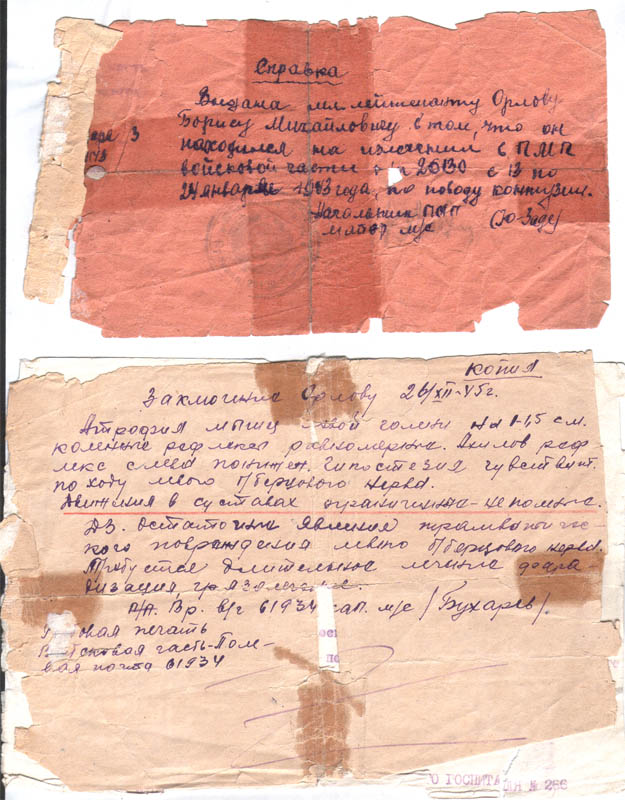 Справка
Выдана мл. лейтенанту Орлову
Борису Михайловичу в том, что он
находился на излечении в ПМП
войсковой части п/п 20130 с 13 по
24 января 1943 года, по поводу контузии.
Начальник ПМП
майор м/с
3
КОПИЯ
Заключение Орлову 26/XII-45г.
Атрофия мышц левой голени на 1-1,5 см.
коленные рефлексы равномерные. Ахилов реф-
лекс слева понижен. Гипостезия чувствит.
по ходу левого М/берцового нерва.
Движения в суставах ограничены - не полные.
ДЗ. Остаточные явления травматичес-
кого повреждения левого М/берцового нерва.
Требуется длительное лечение фара-
дизация, грязелечение.
П/П. Вр. в/ч 61934 кап. м/с /Бухарев/.
печать
часть-Поле-
вая почта 61934
О ГОСПИТА № 266